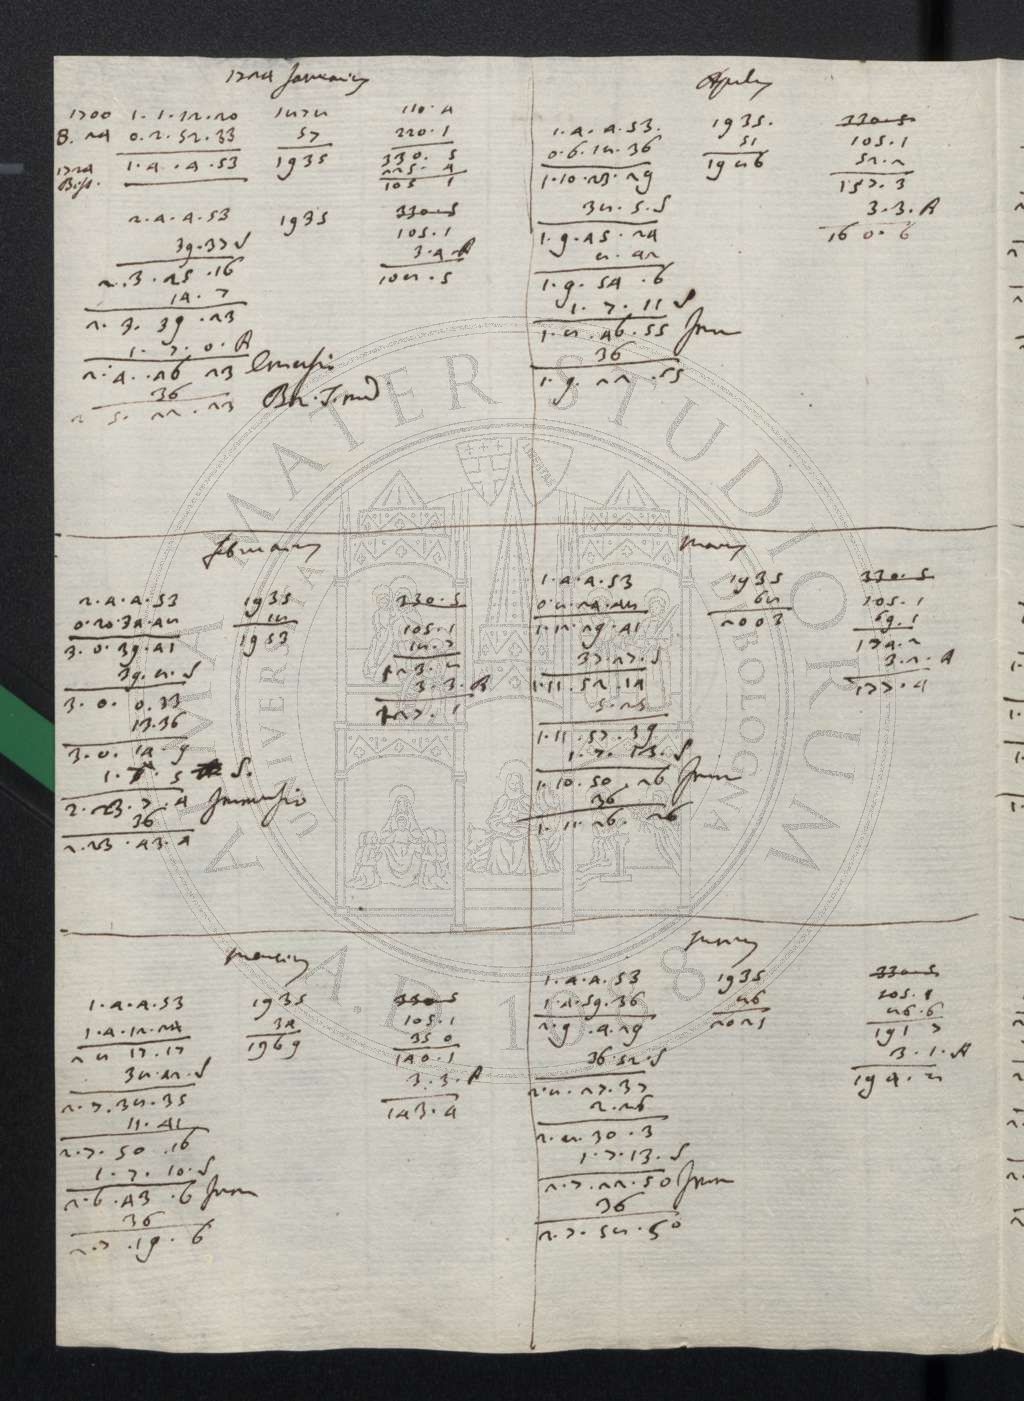 1724 Januarius
1700 1.1.12.20 1878 110.4
B. 24 0.2.52.33 57 220.1
1724 1.4.4.53 1935 330.5
Biss. 225.4
105 1
2.4.4.53 1935 330.5
39.37 S 105.1
2.3.25.16 3.4.A
14.7 108.5
2.3.39.23
1.7.0.A
2.4.46 23 Emersio
36
2 5.22.23
Februarius
2.4.4.53 1935 330.5
0.20.34.48 18 105.1
3.0.39.41 1953 18.7
39.8.S 123.8
3.0.0.33 3.3.A
13.36 127.1
3.0.14.9
1.7.5 S.
2.23.7.4 Immersio
36
2.23.43.4
Martius
1.4.4.53 1935 330.5
1.4.12.24 34 105.1
2 8 17.17 1969 35 0
38.42.S 140.1
2.7.38.35 3.3.A
11.41 143.4
2.7.50.16
1.7.10.S
2.6.43.6 Imm
36
2.7.19.6
Aprilis
1.4.4.53. 1935. 330.5
0.6.18.36 51 105.1
1.10.23.29 1986 52.2
38.5.S 157.3
1.9.45.24 3.3.A
8.42 160.6
1.9.54.6
1.7.11 S
1.8.46.55 Imm
36
1.9.22.55
Maius
1.4.4.53 1935 330.5
0.8.24.48 68 105.1
1.12.29.41 2003 69.1
37.27.S 174.2
1.11.52.14 3.2.A
5.25 177.4
1.11.57.39
1.7.13.S
1.10.50.26 Imm
36
1.11.26.26
Junius
1.4.4.53 1935 330.5
1.4.59.36 86 105.1
2.9.4.29 2021 86.6
36.52.S 191 7
2.8.27.37 3.1.A
2.26 194.8
2.8.30.3
1.7.13.S
2.7.22.50 Imm
36
2.7.58.50
ALMA MATER STUDIORUM
UNIVERSITÀ DI BOLOGNA
A.D. 1088